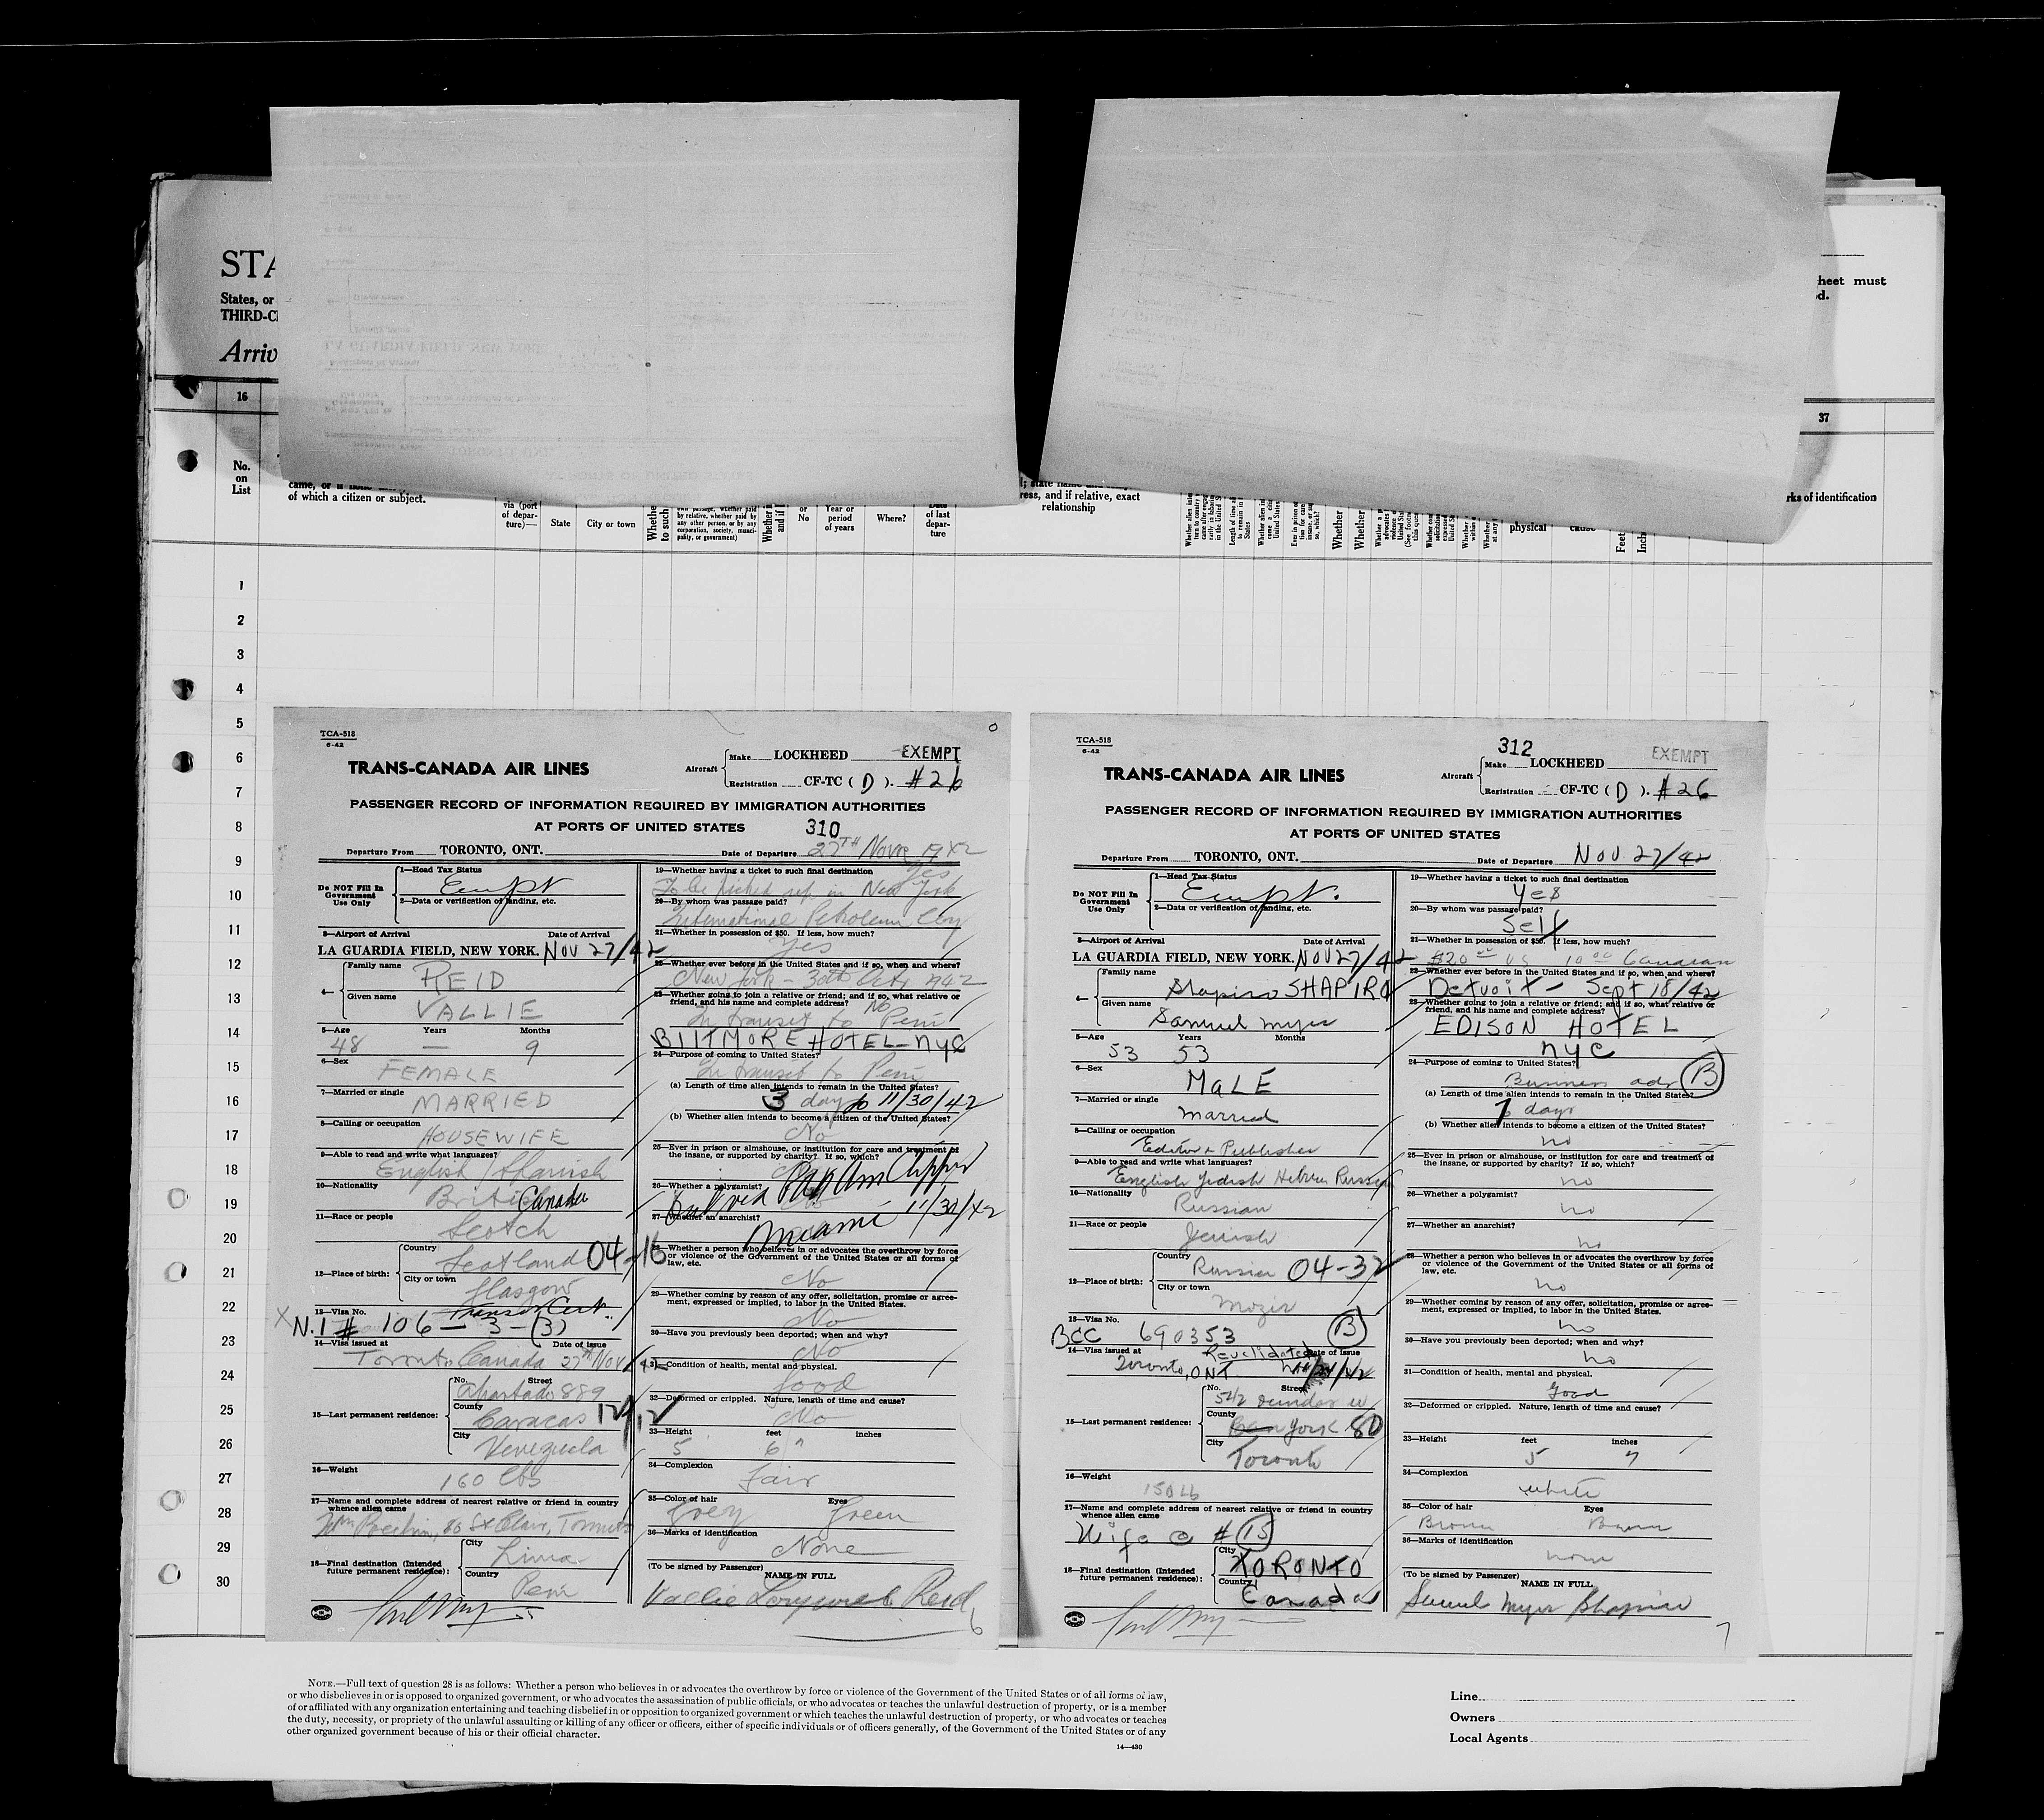 STA
States, or
THIRD-C
Arriv
heet must
d.
16
37
No.
on
List
came, or if none
of which a citizen or subject.
via (port
of depar-
ture)—
State
City or town
Whethe
to such
own passage, whether paid
by relative, whether paid by
any other person, or by any
corporation, society, munici-
pality, or government)
or
No
Year or
period
of years
Where?
Date
of last
depar-
ture
ress, and if relative, exact
relationship
physical
cause
Feet
Inch
rks of identification
1
2
3
4
5
6
7
8
9
10
11
12
13
14
15
16
17
18
19
20
21
22
23
24
25
26
27
28
29
30
TCA-518
6-42
TRANS-CANADA AIR LINES
Aircraft
Make LOCKHEED EXEMPT
Registration CF-TC ( D ). #26
PASSENGER RECORD OF INFORMATION REQUIRED BY IMMIGRATION AUTHORITIES
AT PORTS OF UNITED STATES 310
Departure From TORONTO, ONT. Date of Departure 27TH Novr 1942
Do NOT Fill In
Government
Use Only
1—Head Tax Status
Exempt
2—Data or verification of landing, etc.
3—Airport of Arrival Date of Arrival
LA GUARDIA FIELD, NEW YORK. NOV 27/42
4— Family name REID
Given name VALLIE
5—Age Years Months
48 — 9
6—Sex
FEMALE
7—Married or single
MARRIED
8—Calling or occupation
HOUSEWIFE
9—Able to read and write what languages?
English / Spanish
10—Nationality
British Canada
11—Race or people
Scotch
12—Place of birth: Country Scotland 04-16
City or town
Glasgow
13—Visa No. Transit Cert.
X N.I # 106 — 3 - (3)
14—Visa issued at Date of issue
Toronto Canada 27th Nov/42
15—Last permanent residence:
No. Street
Apartado 889
County
Caracas
City
Venezuela
16—Weight
160 lbs
17—Name and complete address of nearest relative or friend in country
whence alien came
St Clair, Toronto
18—Final destination (Intended
future permanent residence):
City
Lima
Country
Peru
19—Whether having a ticket to such final destination
Yes
To be picked up in New York
20—By whom was passage paid?
International Petroleum Coy
21—Whether in possession of $50. If less, how much?
Yes
22—Whether ever before in the United States and if so, when and where?
New York - 30th Oct, 1942
23—Whether going to join a relative or friend; and if so, what relative or
friend, and his name and complete address?
No
In transit to Peru
BILTMORE HOTEL - NYC
24—Purpose of coming to United States?
In transit to Peru
(a) Length of time alien intends to remain in the United States?
3 days to 11/30/42
(b) Whether alien intends to become a citizen of the United States?
No
25—Ever in prison or almshouse, or institution for care and treatment of
the insane, or supported by charity? If so, which?
Pan Am Clipper
26—Whether a polygamist?
27—Whether an anarchist?
Miami 11/30/42
28—Whether a person who believes in or advocates the overthrow by force
or violence of the Government of the United States or all forms of
law, etc.
No
29—Whether coming by reason of any offer, solicitation, promise or agree-
ment, expressed or implied, to labor in the United States.
No
30—Have you previously been deported; when and why?
No
31—Condition of health, mental and physical.
Good
32—Deformed or crippled. Nature, length of time and cause?
No
33—Height feet inches
5 6"
34—Complexion
Fair
35—Color of hair Eyes
Grey Green
36—Marks of identification
None
(To be signed by Passenger)
NAME IN FULL
Vallie Reid
6
TCA-518
6-42
312
TRANS-CANADA AIR LINES
Aircraft
Make LOCKHEED EXEMPT
Registration CF-TC ( D ). #26
PASSENGER RECORD OF INFORMATION REQUIRED BY IMMIGRATION AUTHORITIES
AT PORTS OF UNITED STATES
Departure From TORONTO, ONT. Date of Departure NOV 27/42
Do NOT Fill In
Government
Use Only
1—Head Tax Status
Exempt.
2—Data or verification of landing, etc.
3—Airport of Arrival Date of Arrival
LA GUARDIA FIELD, NEW YORK. NOV 27/42
4— Family name Shapiro SHAPIRO
Given name Samuel Myer
5—Age Years Months
53 53
6—Sex
MALE
7—Married or single
Married
8—Calling or occupation
Editor & Publisher
9—Able to read and write what languages?
English Yedish Hebrew Russian
10—Nationality
Russian
11—Race or people
Jewish
12—Place of birth: Country
Russia 04-32
City or town
Mozir
13—Visa No.
BCC 690353 (B)
14—Visa issued at Revalidated Date of issue
Toronto, ONT
15—Last permanent residence:
No. Street
542 Dundas W
County
York 80
City
Toronto
16—Weight
150 lb
17—Name and complete address of nearest relative or friend in country
whence alien came
Wife @ # (15)
18—Final destination (Intended
future permanent residence):
City
TORONTO
Country
Canada
19—Whether having a ticket to such final destination
Yes
20—By whom was passage paid?
Self
21—Whether in possession of $50. If less, how much?
$20 00 US 10 00 Canadian
22—Whether ever before in the United States and if so, when and where?
Detroit - Sept 18/42
23—Whether going to join a relative or friend; and if so, what relative or
friend, and his name and complete address?
EDISON HOTEL
NYC
24—Purpose of coming to United States?
Business (B)
(a) Length of time alien intends to remain in the United States?
7 days
(b) Whether alien intends to become a citizen of the United States?
no
25—Ever in prison or almshouse, or institution for care and treatment of
the insane, or supported by charity? If so, which?
no
26—Whether a polygamist?
no
27—Whether an anarchist?
no
28—Whether a person who believes in or advocates the overthrow by force
or violence of the Government of the United States or all forms of
law, etc.
no
29—Whether coming by reason of any offer, solicitation, promise or agree-
ment, expressed or implied, to labor in the United States.
no
30—Have you previously been deported; when and why?
no
31—Condition of health, mental and physical.
Good
32—Deformed or crippled. Nature, length of time and cause?
33—Height feet inches
5 7
34—Complexion
white
35—Color of hair Eyes
Brown Brown
36—Marks of identification
none
(To be signed by Passenger)
NAME IN FULL
Samuel Myer Shapiro
7
NOTE.—Full text of question 28 is as follows: Whether a person who believes in or advocates the overthrow by force or violence of the Government of the United States or of all forms of law,
or who disbelieves in or is opposed to organized government, or who advocates the assassination of public officials, or who advocates or teaches the unlawful destruction of property, or is a member
of or affiliated with any organization entertaining and teaching disbelief in or opposition to organized government or which teaches the unlawful destruction of property, or who advocates or teaches
the duty, necessity, or propriety of the unlawful assaulting or killing of any officer or officers, either of specific individuals or of officers generally, of the Government of the United States or of any
other organized government because of his or their official character.
14—430
Line
Owners
Local Agents